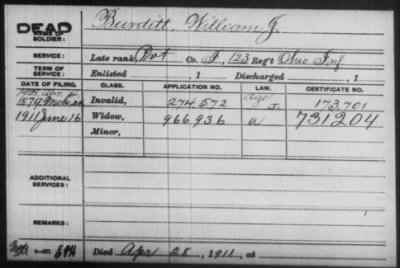 DEAD
NAME OF SOLDIER:
Burditt, William J.
SERVICE:
Late rank, Pvt Co. F, 123 Reg't Ohio Inf
TERM OF SERVICE:
Enlisted , 1 Discharged , 1
DATE OF FILING. CLASS. APPLICATION NO. LAW. CERTIFICATE NO.
1879 Invalid, 274,572 173,701
1911 June 16 Widow, 966,936 731204
Minor,
ADDITIONAL SERVICES:
REMARKS:
Died Apr 28, 1911, at